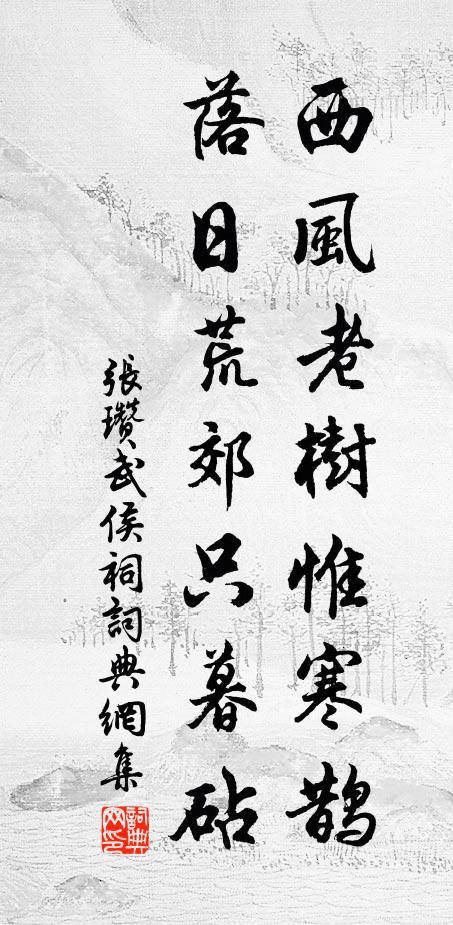 西風老樹惟寒鵲
落日荒郊只暮砧
張瓚武侯祠詞典網集
詞典网印